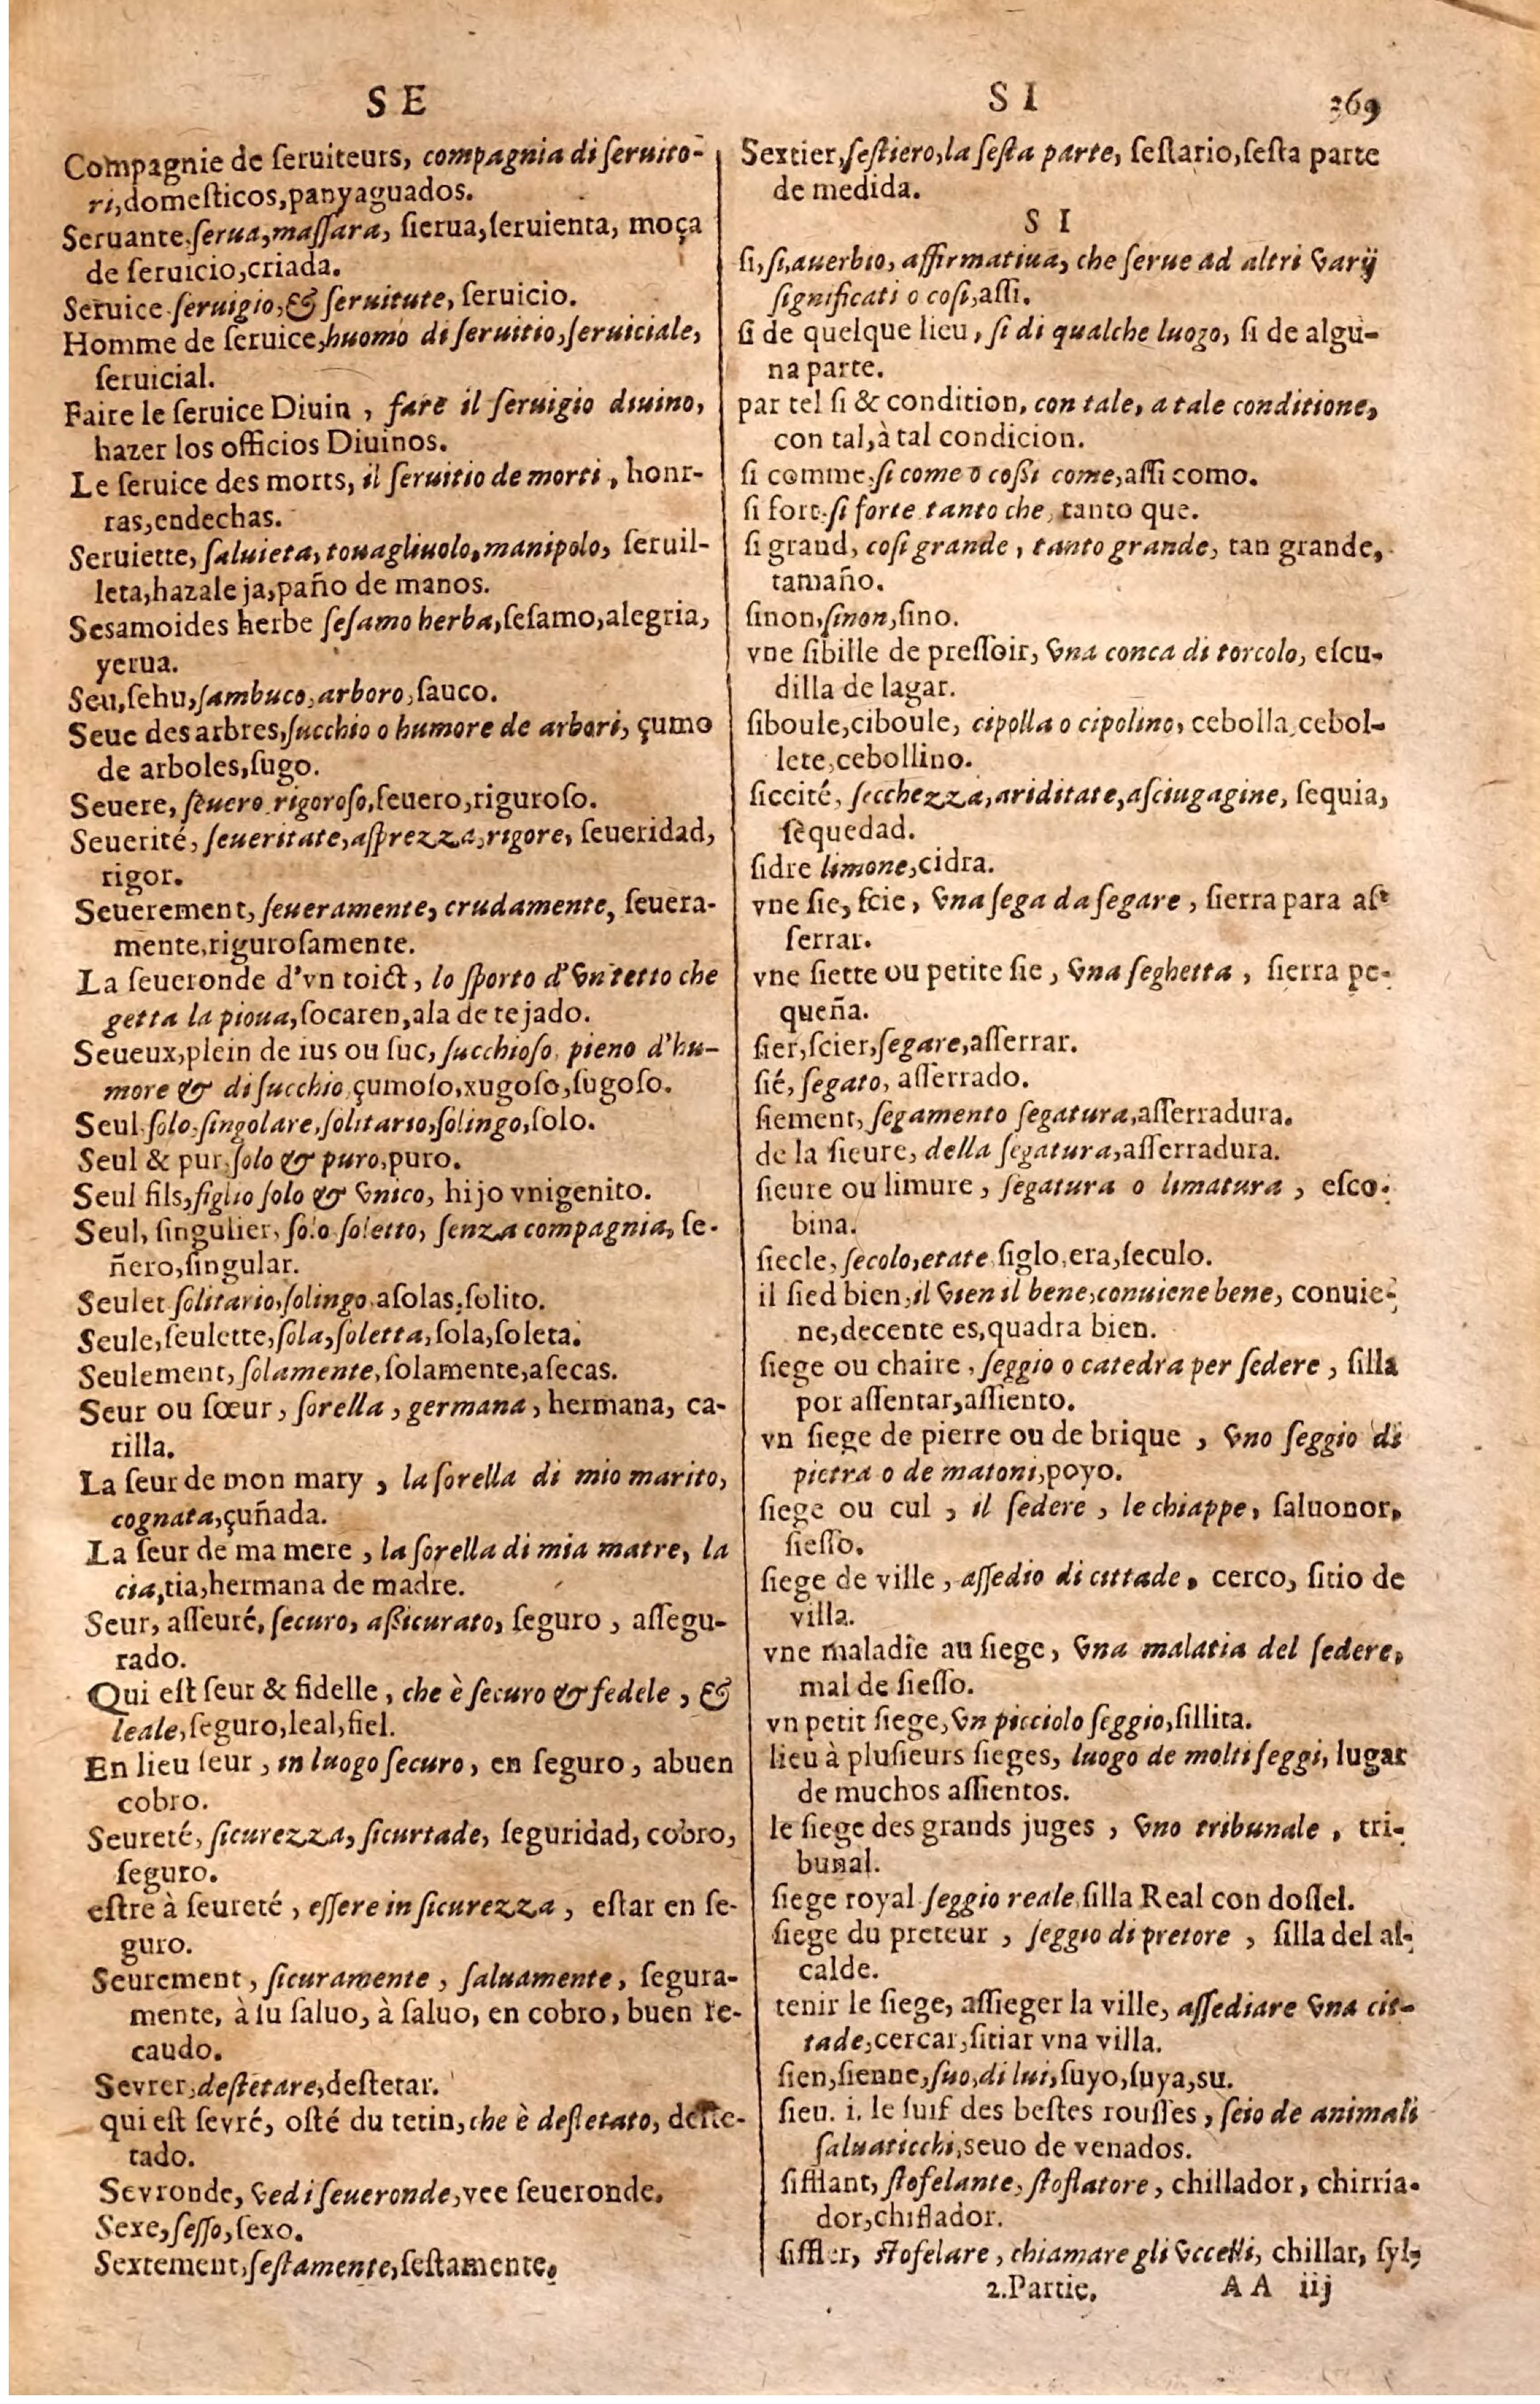 S E
Compagnie de ſeruiteurs, compagnia di ſeruito-
ri, domeſticos, panyaguados.
Seruante. ſerua, maſſara, ſierua, ſeruienta, moça
de ſeruicio, criada.
Seruice ſeruigio, & ſeruitute, ſeruicio.
Homme de ſeruice, huomo di ſeruitio, ſeruiciale,
ſeruicial.
Faire le ſeruice Diuin, fare il ſeruigio diuino,
hazer los officios Diuinos.
Le ſeruice des morts, il ſeruitio de morti, honr-
ras, endechas.
Seruiette, ſaluieta, touagliuolo, manipolo, ſeruil-
leta, hazaleja, paño de manos.
Sesamoides herbe ſeſamo herba, ſeſamo, alegria,
yerua.
Seu, ſehu, ſambuco, arboro, ſauco.
Seue des arbres, ſucchio o humore de arbori, çumo
de arboles, ſugo.
Seuere, ſeuero rigoroſo, ſeuero, riguroſo.
Seuerité, ſeueritate, aſprezza, rigore, ſeueridad,
rigor.
Seuerement, ſeueramente, crudamente, ſeuera-
mente, riguroſamente.
La ſeueronde d'vn toict, lo ſporto d'vn tetto che
getta la pioua, ſocaren, ala de tejado.
Seueux, plein de ius ou ſuc, ſucchioſo, pieno d'hu-
more & di ſucchio, çumoſo, xugoſo, ſugoſo.
Seul, ſolo, ſingolare, ſolitario, ſolingo, ſolo.
Seul & pur, ſolo & puro, puro.
Seul fils, figlio ſolo & vnico, hijo vnigenito.
Seul, ſingulier, ſolo ſoletto, ſenza compagnia, ſe-
ñero, ſingular.
Seulet ſolitario, ſolingo, aſolas, ſolito.
Seule, ſeulette, ſola, ſoletta, ſola, ſoleta.
Seulement, ſolamente, ſolamente, aſecas.
Seur ou ſœur, ſorella, germana, hermana, ca-
rilla.
La ſeur de mon mary, la ſorella di mio marito,
cognata, çuñada.
La ſeur de ma mere, la ſorella di mia matre, la
cia, tia, hermana de madre.
Seur, aſſeuré, ſecuro, aßicurato, ſeguro, aſſegu-
rado.
Qui eſt ſeur & fidelle, che è ſecuro & fedele, &
leale, ſeguro, leal, fiel.
En lieu ſeur, in luogo ſecuro, en ſeguro, abuen
cobro.
Seureté, ſicurezza, ſicurtade, ſeguridad, cobro,
ſeguro.
eſtre à ſeureté, eſſere in ſicurezza, eſtar en ſe-
guro.
Seurement, ſicuramente, ſaluamente, ſegura-
mente, à ſu ſaluo, à ſaluo, en cobro, buen re-
caudo.
Sevrer, deſtetare, deſtetar.
qui eſt ſevré, oſté du tetin, che è deſtetato, deſte-
tado.
Sevronde, vedi ſeueronde, vee ſeueronde.
Sexe, ſeſſo, ſexo.
Sextement, ſeſtamente, ſeſtamente.
S I 369
Sextier, ſeſtiero, la ſeſta parte, ſeſtario, ſeſta parte
de medida.
S I
ſi, ſi, auerbio, affirmatiua, che ſerue ad altri varij
ſignificati o coſi, aſſi.
ſi de quelque lieu, ſi di qualche luogo, ſi de algu-
na parte.
par tel ſi & condition, con tale, a tale conditione,
con tal, à tal condicion.
ſi comme, ſi come o coßi come, aſſi como.
ſi fort. ſi forte tanto che, tanto que.
ſi grand, coſi grande, tanto grande, tan grande,
tamaño.
ſinon, ſinon, ſino.
vne ſibille de preſſoir, vna conca di torcolo, eſcu-
dilla de lagar.
ſiboule, ciboule, cipolla o cipolino, cebolla, cebol-
lete, cebollino.
ſiccité, ſecchezza, ariditate, aſciugagine, ſequia,
ſequedad.
ſidre limone, cidra.
vne ſie, ſcie, vna ſega da ſegare, ſierra para aſ-
ſerrar.
vne ſiette ou petite ſie, vna ſeghetta, ſierra pe-
queña.
ſier, ſcier, ſegare, aſſerrar.
ſié, ſegato, aſſerrado.
ſiement, ſegamento ſegatura, aſſerradura.
de la ſieure, della ſegatura, aſſerradura.
ſieure ou limure, ſegatura o limatura, eſco-
bina.
ſiecle, ſecolo, etate, ſiglo, era, ſeculo.
il ſied bien, il vien il bene, conuiene bene, conuie-
ne, decente es, quadra bien.
ſiege ou chaire, ſeggio o catedra per ſedere, ſilla
por aſſentar, aſſiento.
vn ſiege de pierre ou de brique, vno ſeggio di
pietra o de matoni, poyo.
ſiege ou cul, il ſedere, le chiappe, ſaluonor,
ſieſſo.
ſiege de ville, aſſedio di cittade, cerco, ſitio de
villa.
vne maladie au ſiege, vna malatia del ſedere,
mal de ſieſſo.
vn petit ſiege, vn picciolo ſeggio, ſillita.
lieu à pluſieurs ſieges, luogo de molti ſeggi, lugar
de muchos aſſientos.
le ſiege des grands juges, vno tribunale, tri-
bunal.
ſiege royal ſeggio reale, ſilla Real con doſſel.
ſiege du preteur, ſeggio di pretore, ſilla del al-
calde.
tenir le ſiege, aſſieger la ville, aſſediare vna cit-
tade, cercar, ſitiar vna villa.
ſien, ſienne, ſuo, di lui, ſuyo, ſuya, su.
ſieu. i. le ſuif des beſtes rouſſes, ſeio de animali
ſaluaticchi, seuo de venados.
ſifflant, ſtofelante, ſtoflatore, chillador, chirria-
dor, chiflador.
ſiffler, ſtofelare, chiamare gli vccelli, chillar, ſyl-
2. Partie. A A iij